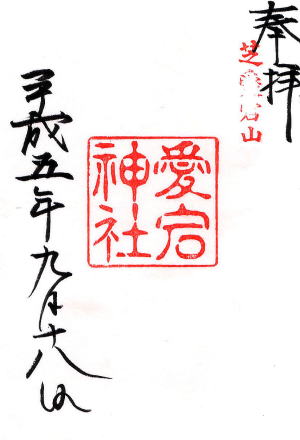 奉拝
芝愛宕山
愛宕
神社
平成五年九月十八日